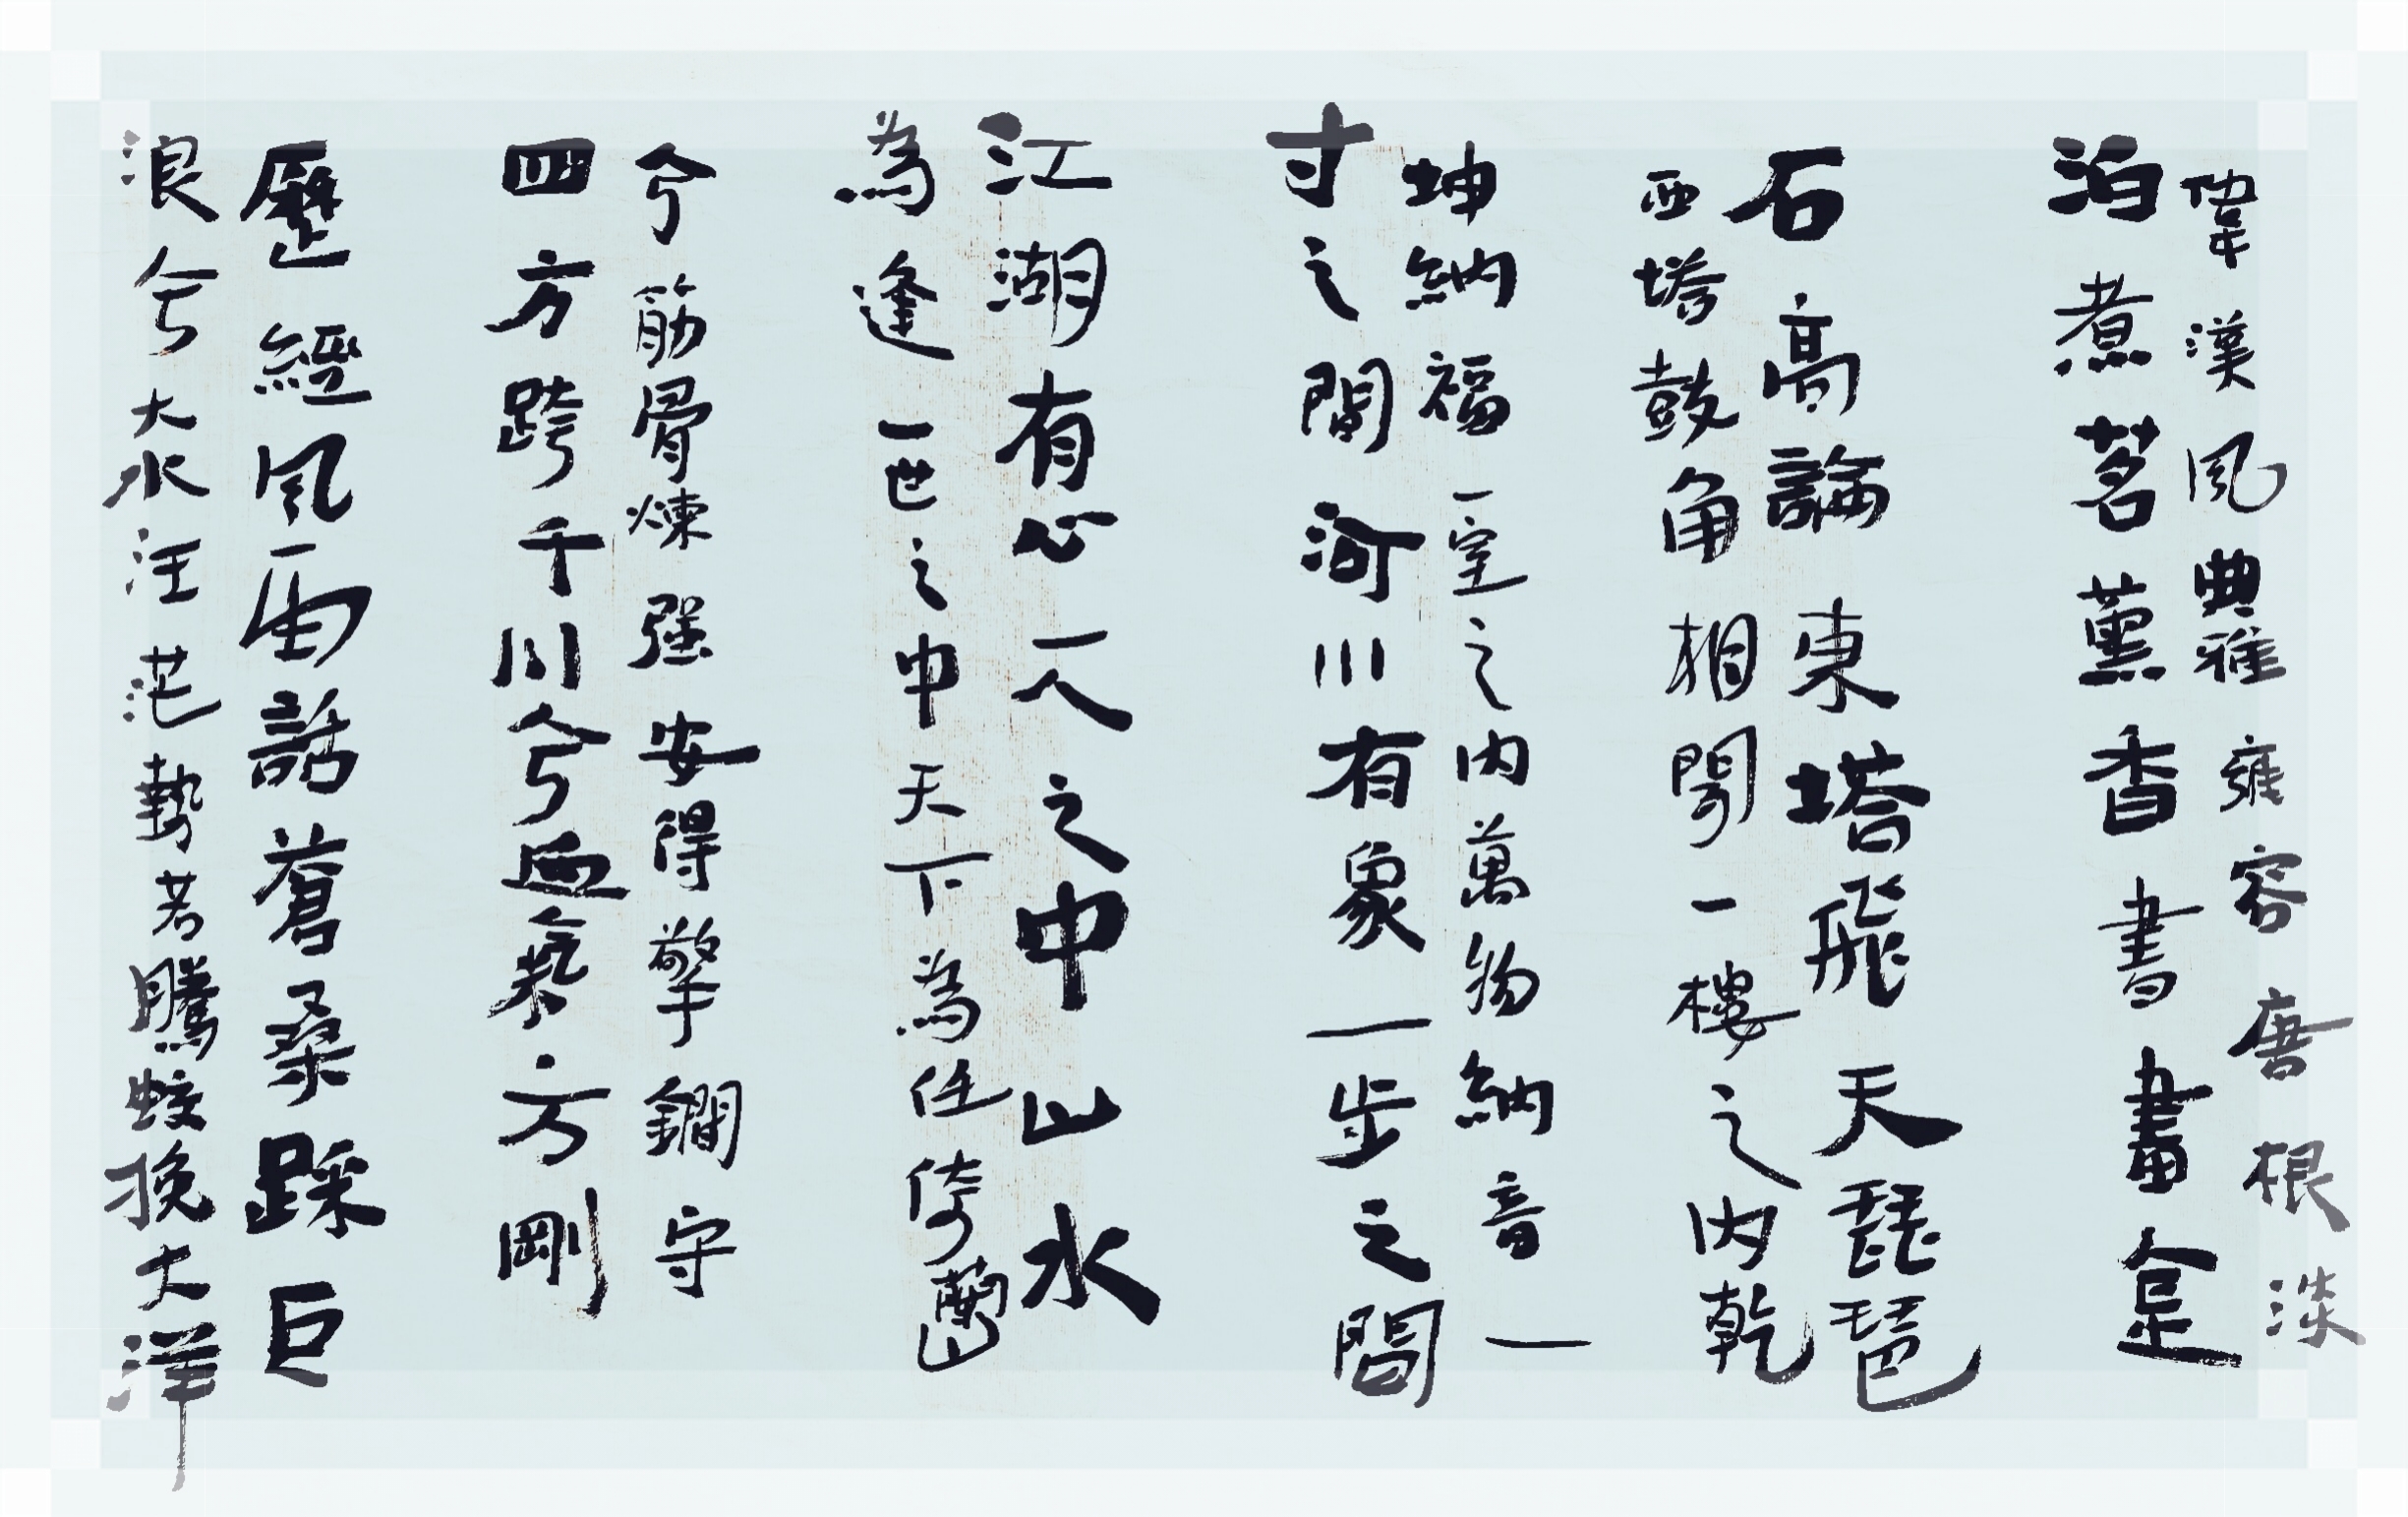 偉漢風典雅雍容唐根淡
泊煮茗薰香書畫金
石高論東塔飛天琵琶
西塔鼓角相聞一樓之內乾
坤納福一室之內萬物納音一
寸之間河川有象一步之間
江湖有心一人之中山水
為逢一世之中天下為任倚
兮筋骨煉强安得擎鐧守
四方跨千川兮血氣方剛
歷經風雨話蒼桑踩巨
浪兮大水汪茫勢若騰蛟挽大洋